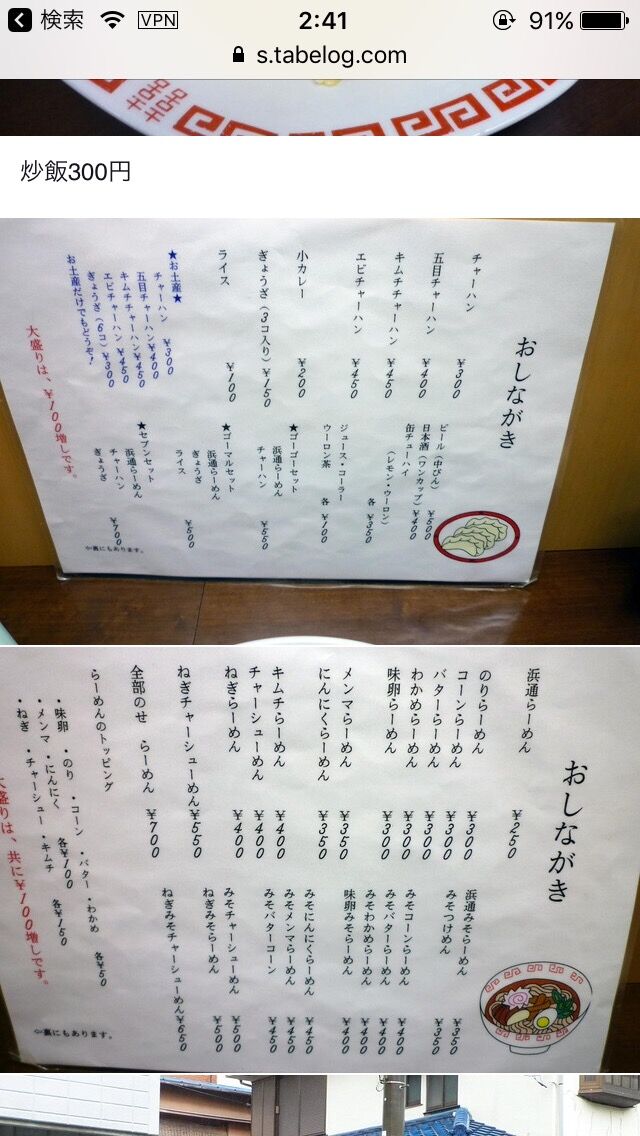 検索
VPN
2:41
91%
s.tabelog.com
炒飯300円
おしながき
チャーハン ¥300
五目チャーハン ¥400
キムチチャーハン ¥450
エビチャーハン ¥450
小カレー ¥200
ぎょうざ(3コ入り) ¥150
ライス ¥100
★お土産★
チャーハン ¥300
五目チャーハン ¥400
キムチチャーハン ¥450
エビチャーハン ¥450
ぎょうざ(6コ) ¥300
お土産だけでもどうぞ!
大盛りは、¥100増しです。
ビール(中びん) ¥500
日本酒(ワンカップ) ¥400
缶チューハイ
(レモン・ウーロン) 各¥350
ジュース・コーラー
ウーロン茶 各¥100
★ゴーゴーセット
浜通らーめん
チャーハン ¥550
★ゴーマルセット
浜通らーめん
ぎょうざ
ライス ¥500
★セブンセット
浜通らーめん
チャーハン
ぎょうざ ¥700
裏にもあります。
おしながき
浜通らーめん ¥250
のりらーめん ¥300
コーンらーめん ¥300
バターらーめん ¥300
わかめらーめん ¥300
味卵らーめん ¥300
メンマらーめん ¥350
にんにくらーめん ¥350
キムチらーめん ¥400
チャーシューめん ¥400
ねぎらーめん ¥400
ねぎチャーシューめん ¥550
全部のせ らーめん ¥700
らーめんのトッピング
・味卵 ・のり ・コーン ・バター ・わかめ 各¥50
・メンマ ・にんにく 各¥100
・ねぎ ・チャーシュー ・キムチ 各¥150
大盛りは、共に¥100増しです。
浜通みそらーめん ¥350
みそつけめん ¥350
みそコーンらーめん ¥400
みそバターらーめん ¥400
みそわかめらーめん ¥400
味卵みそらーめん ¥400
みそにんにくらーめん ¥450
みそメンマらーめん ¥450
みそバターコーン ¥450
みそチャーシューめん ¥500
ねぎみそらーめん ¥500
ねぎみそチャーシューめん ¥650
裏にもあります。